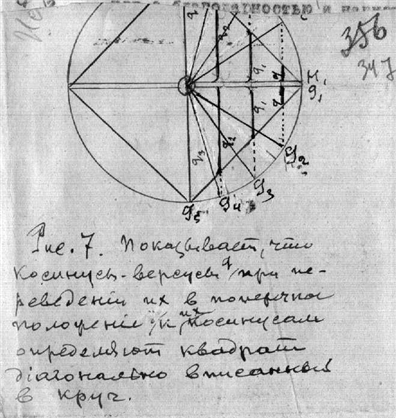 благодарностью и
356
347
H,
g,
g2
g3
g4
g5
Рис. 7. Показывает, что
косинусъ-версусы g при пе-
реведенiи их в поперечное
положенiе к их косинусам
определяют квадрат
дiагонально вписанный
в круг.